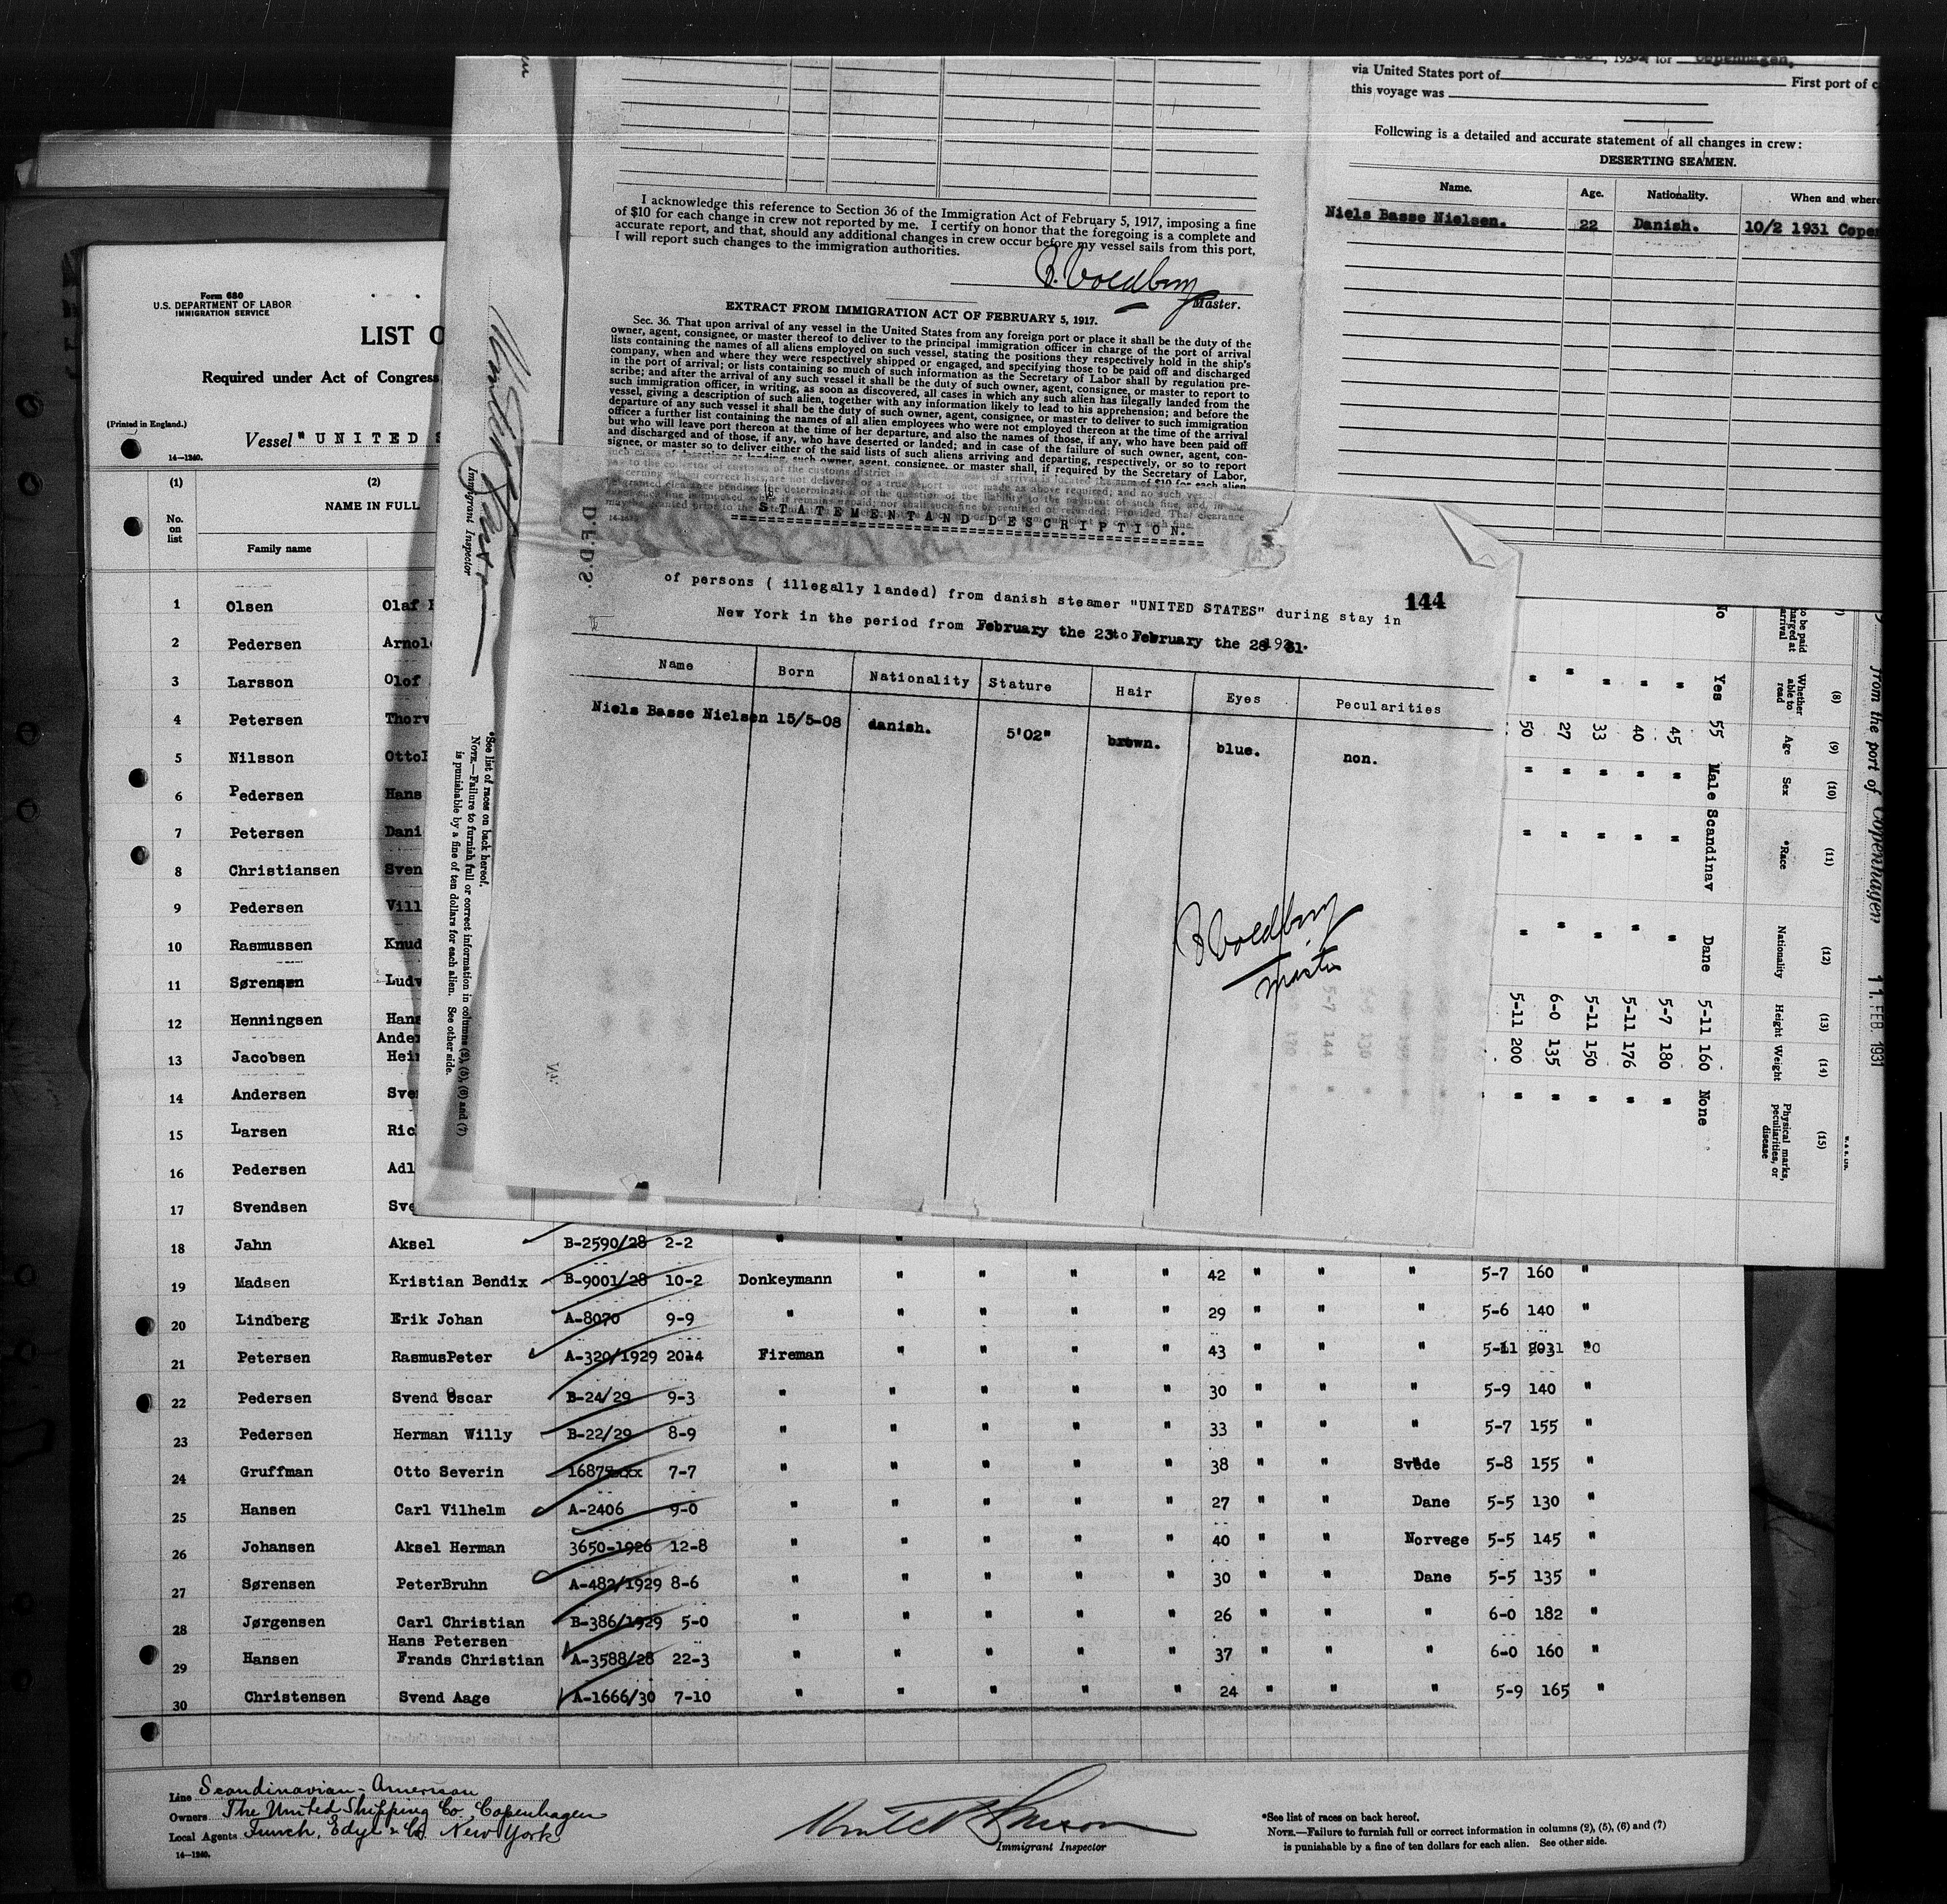 Form 680
U.S. DEPARTMENT OF LABOR
IMMIGRATION SERVICE
LIST O
Required under Act of Congress
(Printed in England.)
Vessel "UNITED S
14—1240.
(1) (2)
No. on list
NAME IN FULL
Family name
1 Olsen Olaf
2 Pedersen Arnol
3 Larsson Olof
4 Petersen Thorv
5 Nilsson Otto
6 Pedersen Hans
7 Petersen Dani
8 Christiansen Sven
9 Pedersen Vill
10 Rasmussen Knud
11 Sørensen Ludv
12 Henningsen Hans
Ander
13 Jacobsen Hei
14 Andersen Sve
15 Larsen Ric
16 Pedersen Adl
17 Svendsen Sve
18 Jahn Aksel B-2590/28 2-2 " "
19 Madsen Kristian Bendix B-9001/28 10-2 Donkeymann " " " " 42 " " " 5-7 160 "
20 Lindberg Erik Johan A-8070 9-9 " " " " " 29 " " " 5-6 140 "
21 Petersen RasmusPeter A-320/1929 2014 Fireman " " " " 43 " " " 5-11
22 Pedersen Svend Oscar B-24/29 9-3 " " " " " 30 " " " 5-9 140 "
23 Pedersen Herman Willy B-22/29 8-9 " " " " " 33 " " " 5-7 155 "
24 Gruffman Otto Severin 16875xxx 7-7 " " " " " 38 " " Svede 5-8 155 "
25 Hansen Carl Vilhelm A-2406 9-0 " " " " " 27 " " Dane 5-5 130 "
26 Johansen Aksel Herman 3650-1926 12-8 " " " " " 40 " " Norvege 5-5 145 "
27 Sørensen PeterBruhn A-482/1929 8-6 " " " " " 30 " " Dane 5-5 135 "
28 Jørgensen Carl Christian B-386/1929 5-0 " " " " " 26 " " " 6-0 182 "
Hans Petersen
29 Hansen Frands Christian A-3588/28 22-3 " " " " " 37 " " " 6-0 160 "
30 Christensen Svend Aage A-1666/30 7-10 " " " " " 24 " " " 5-9 165 "
Line Scandinavian-American
Owners The United Shipping Co. Copenhagen
Local Agents Funch, Edye & Co. New York
14—1240.
Immigrant Inspector
*See list of races on back hereof.
NOTE.—Failure to furnish full or correct information in columns (2), (5), (6) and (7)
is punishable by a fine of ten dollars for each alien. See other side.
Immigrant Inspector
*See list of races on back hereof.
NOTE.—Failure to furnish full or correct information in columns (2), (5), (6) and (7)
is punishable by a fine of ten dollars for each alien. See other side.
I acknowledge this reference to Section 36 of the Immigration Act of February 5, 1917, imposing a fine
of $10 for each change in crew not reported by me. I certify on honor that the foregoing is a complete and
accurate report, and that, should any additional changes in crew occur before my vessel sails from this port,
I will report such changes to the immigration authorities.
Voldborg
Master.
EXTRACT FROM IMMIGRATION ACT OF FEBRUARY 5, 1917.
Sec. 36. That upon arrival of any vessel in the United States from any foreign port or place it shall be the duty of the
owner, agent, consignee, or master thereof to deliver to the principal immigration officer in charge of the port of arrival
lists containing the names of all aliens employed on such vessel, stating the positions they respectively hold in the ship's
company, when and where they were respectively shipped or engaged, and specifying those to be paid off and discharged
in the port of arrival; or lists containing so much of such information as the Secretary of Labor shall by regulation pre-
scribe; and after the arrival of any such vessel it shall be the duty of such owner, agent, consignee, or master to report to
such immigration officer, in writing, as soon as discovered, all cases in which any such alien has illegally landed from the
vessel, giving a description of such alien, together with any information likely to lead to his apprehension; and before the
departure of any such vessel it shall be the duty of such owner, agent, consignee, or master to deliver to such immigration
officer a further list containing the names of all alien employees who were not employed thereon at the time of the arrival
but who will leave port thereon at the time of her departure, and also the names of those, if any, who have been paid off
and discharged and of those, if any, who have deserted or landed; and in case of the failure of such owner, agent, con-
signee, or master so to deliver either of the said lists of such aliens arriving and departing, respectively, or so to report
such cases of desertion or landing, such owner, agent, consignee, or master shall, if required by the Secretary of Labor,
via United States port of First port of c
this voyage was
Following is a detailed and accurate statement of all changes in crew:
DESERTING SEAMEN.
Name. Age. Nationality. When and where
Niels Basse Nielsen. 22 Danish. 10/2 1931 Copen
D.F.D.S.
STATEMENT AND DESCRIPTION.
of persons ( illegally landed) from danish steamer "UNITED STATES" during stay in
144
New York in the period from February the 23to February the 28 1931.
Name Born Nationality Stature Hair Eyes Pecularities
Niels Basse Nielsen 15/5-08 danish. 5'02" brown. blue. non.
Voldborg
Master
from the port of Copenhagen 11. FEB. 1931
(8) (9) (10) (11) (12) (13) (14) (15)
Whether able to read Age Sex *Race Nationality Height Weight Physical marks, peculiarities, or disease
No Yes 55 Male Scandinav Dane 5-11 160 None
" 45 " " " 5-7 180 "
" 40 " " " 5-11 176 "
" 33 " " " 5-11 150 "
" 27 " " " 6-0 135 "
" 50 " " " 5-11 200 "